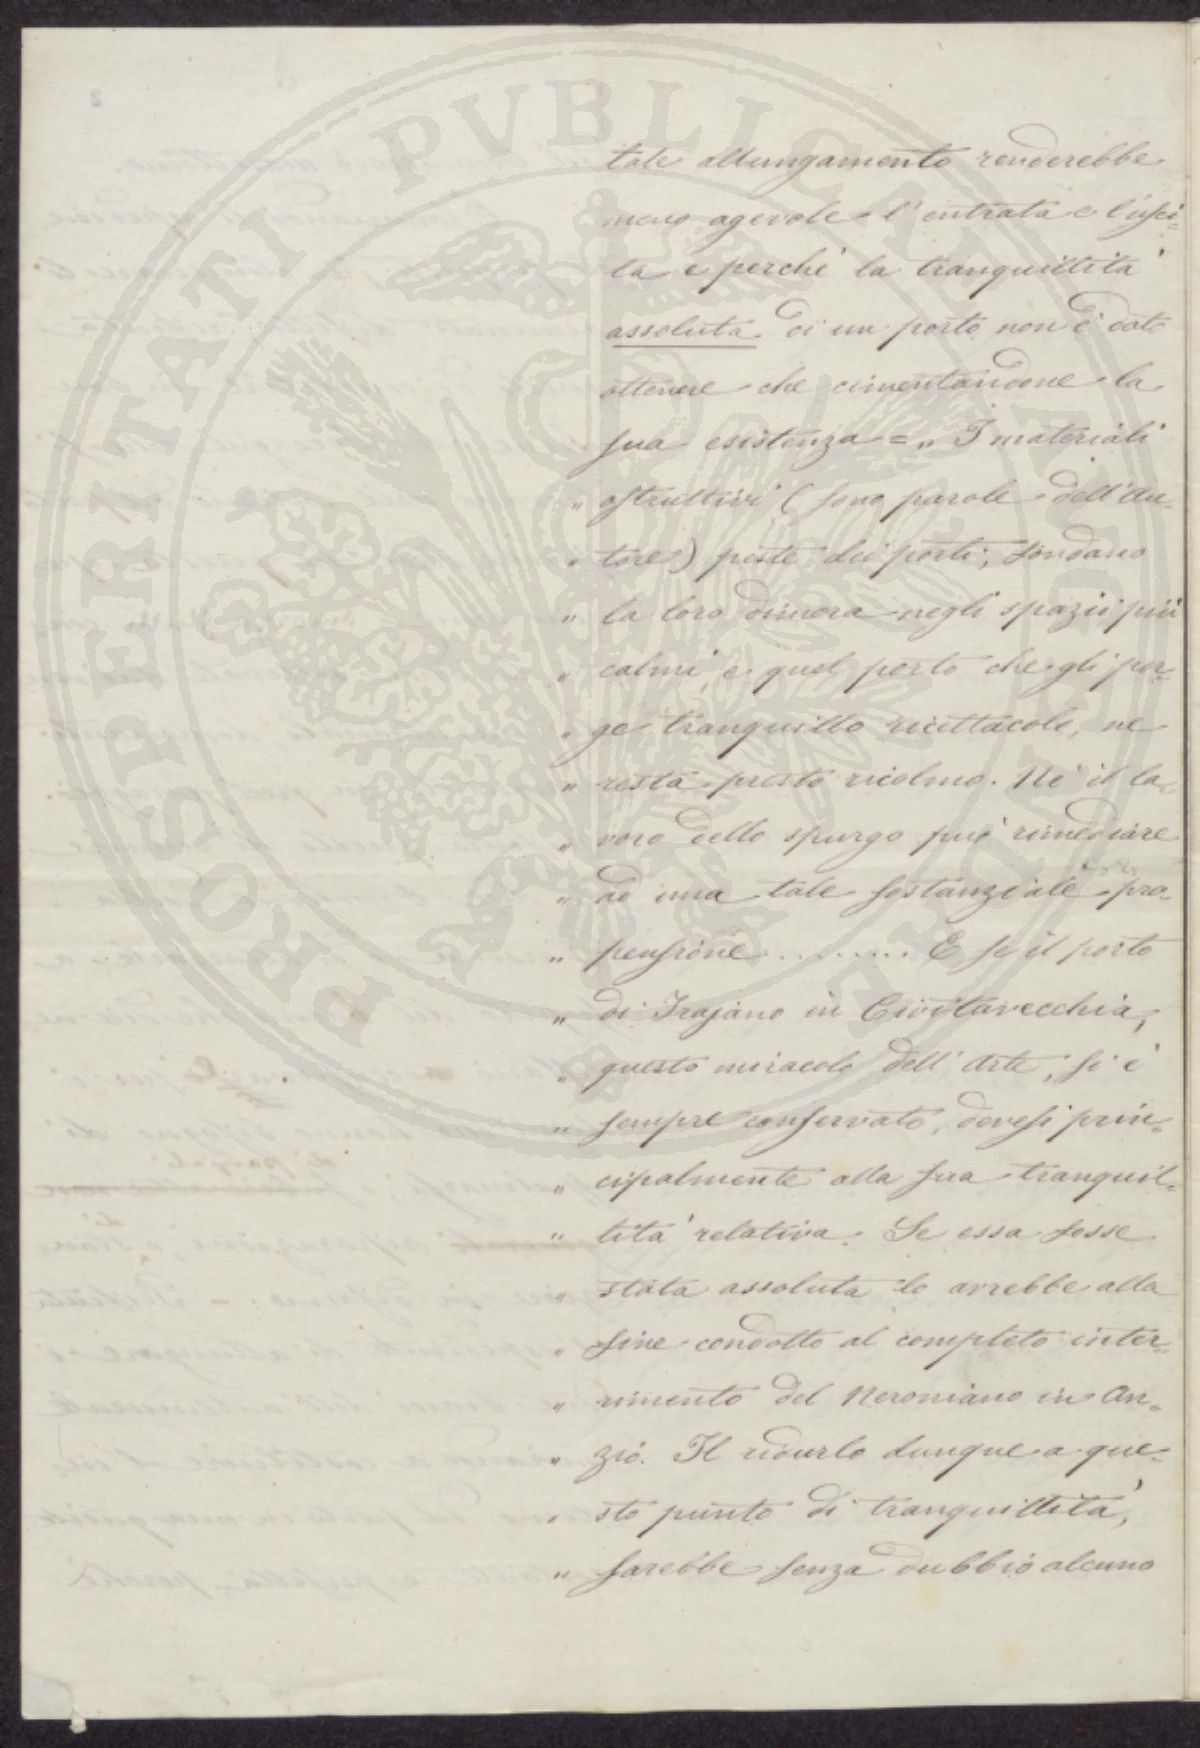 PROSPERITATI PVBLICAE AVGENDAE
tale allungamento renderebbe
meno agevole l'entrata e l'usci-
ta e perché la tranquillità
assoluta di un porto non è dato
ottenere che cimentandone la
sua esistenza = „ I materiali
„ ostruttivi (sono parole dell'Au-
„ tore) peste dei porti, fondano
„ la loro dimora negli spazii più
„ calmi, e quel porto che gli por-
„ ge tranquillo ricettacolo, ne
„ resta presto ricolmo. Nè il la-
„ voro dello spurgo può rimediare
„ ad una tale sostanziale pro-
„ pensione ......... E se il porto
„ di Trajano in Civitavecchia,
„ questo miracolo dell'Arte, si è
„ sempre conservato, devesi prin-
„ cipalmente alla sua tranquil-
„ lità relativa. Se essa fosse
„ stata assoluta lo avrebbe alla
„ fine condotto al completo inter-
„ rimento del Neroniano in An-
„ zio. Il ridurlo dunque a que-
„ sto punto di tranquillità,
„ sarebbe senza dubbio alcuno